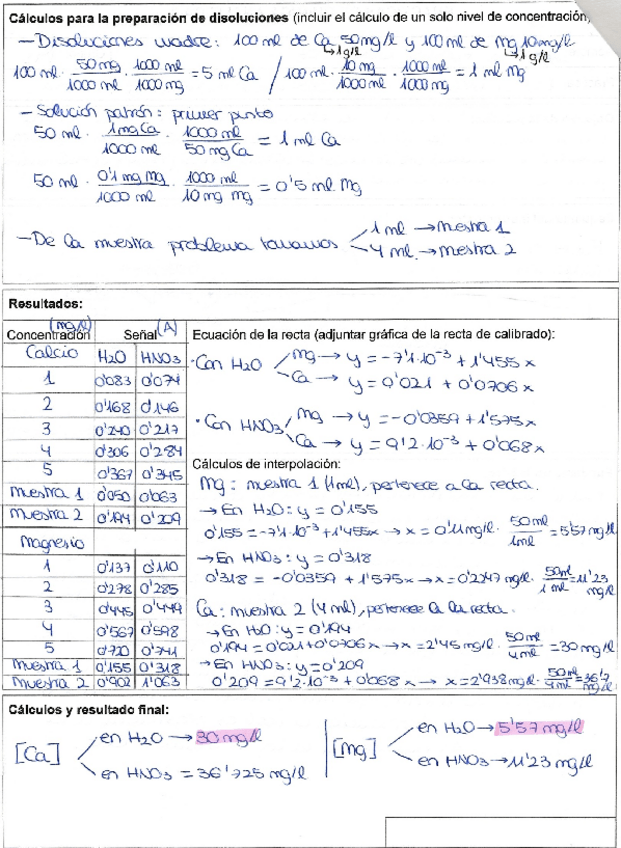 Cálculos para la preparación de disoluciones (incluir el cálculo de un solo nivel de concentración)
- Disoluciones madre: 100 ml de Ca 50mg/l y 100 ml de Mg 10mg/l
↳1g/l ↳1 g/l
100 ml · 50 mg/1000 ml · 1000 ml/1000 mg = 5 ml Ca / 100 ml · 10 mg/1000 ml · 1000 ml/1000 mg = 1 ml Mg
- Solución patrón: primer punto
50 ml · 1mg Ca/1000 ml · 1000 ml/50 mg Ca = 1 ml Ca
50 ml · 0'1 mg Mg/1000 ml · 1000 ml/10 mg Mg = 0'5 ml Mg
- De la muestra problema tomamos 1 ml → mestra 1
4 ml → mestra 2
Resultados:
Concentración (mg/l) Señal (A)
Calcio H2O HNO3
1 0'083 0'074
2 0'168 0'146
3 0'240 0'217
4 0'306 0'284
5 0'367 0'345
muestra 1 0'050 0'063
muestra 2 0'194 0'209
Magnesio
1 0'137 0'110
2 0'278 0'285
3 0'445 0'449
4 0'567 0'598
5 0'720 0'741
muestra 1 0'155 0'318
muestra 2 0'902 1'063
Ecuación de la recta (adjuntar gráfica de la recta de calibrado):
· Con H2O Mg → y = -7'1·10⁻³ + 1'455 x
Ca → y = 0'021 + 0'0706 x
· Con HNO3 Mg → y = -0'0359 + 1'575 x
Ca → y = 9'2·10⁻³ + 0'068 x
Cálculos de interpolación:
Mg: mestra 1 (1ml), pertenece a la recta.
→ En H2O: y = 0'155
0'155 = -7'1·10⁻³ + 1'455x → x = 0'11 mg/l · 50 ml/1ml = 5'57 mg/l
→ En HNO3: y = 0'318
0'318 = -0'0359 + 1'575x → x = 0'2247 mg/l · 50ml/1 ml = 11'23 mg/l
Ca: muestra 2 (4 ml), pertenece a la recta.
→ En H2O: y = 0'194
0'194 = 0'021 + 0'0706 x → x = 2'45 mg/l · 50 ml/4 ml = 30 mg/l
→ En HNO3: y = 0'209
0'209 = 9'2·10⁻³ + 0'068 x → x = 2'938 mg/l · 50 ml/4 ml = 36'7 mg/l
Cálculos y resultado final:
[Ca] en H2O → 30 mg/l
en HNO3 = 36'725 mg/l
[Mg] en H2O → 5'57 mg/l
en HNO3 → 11'23 mg/l